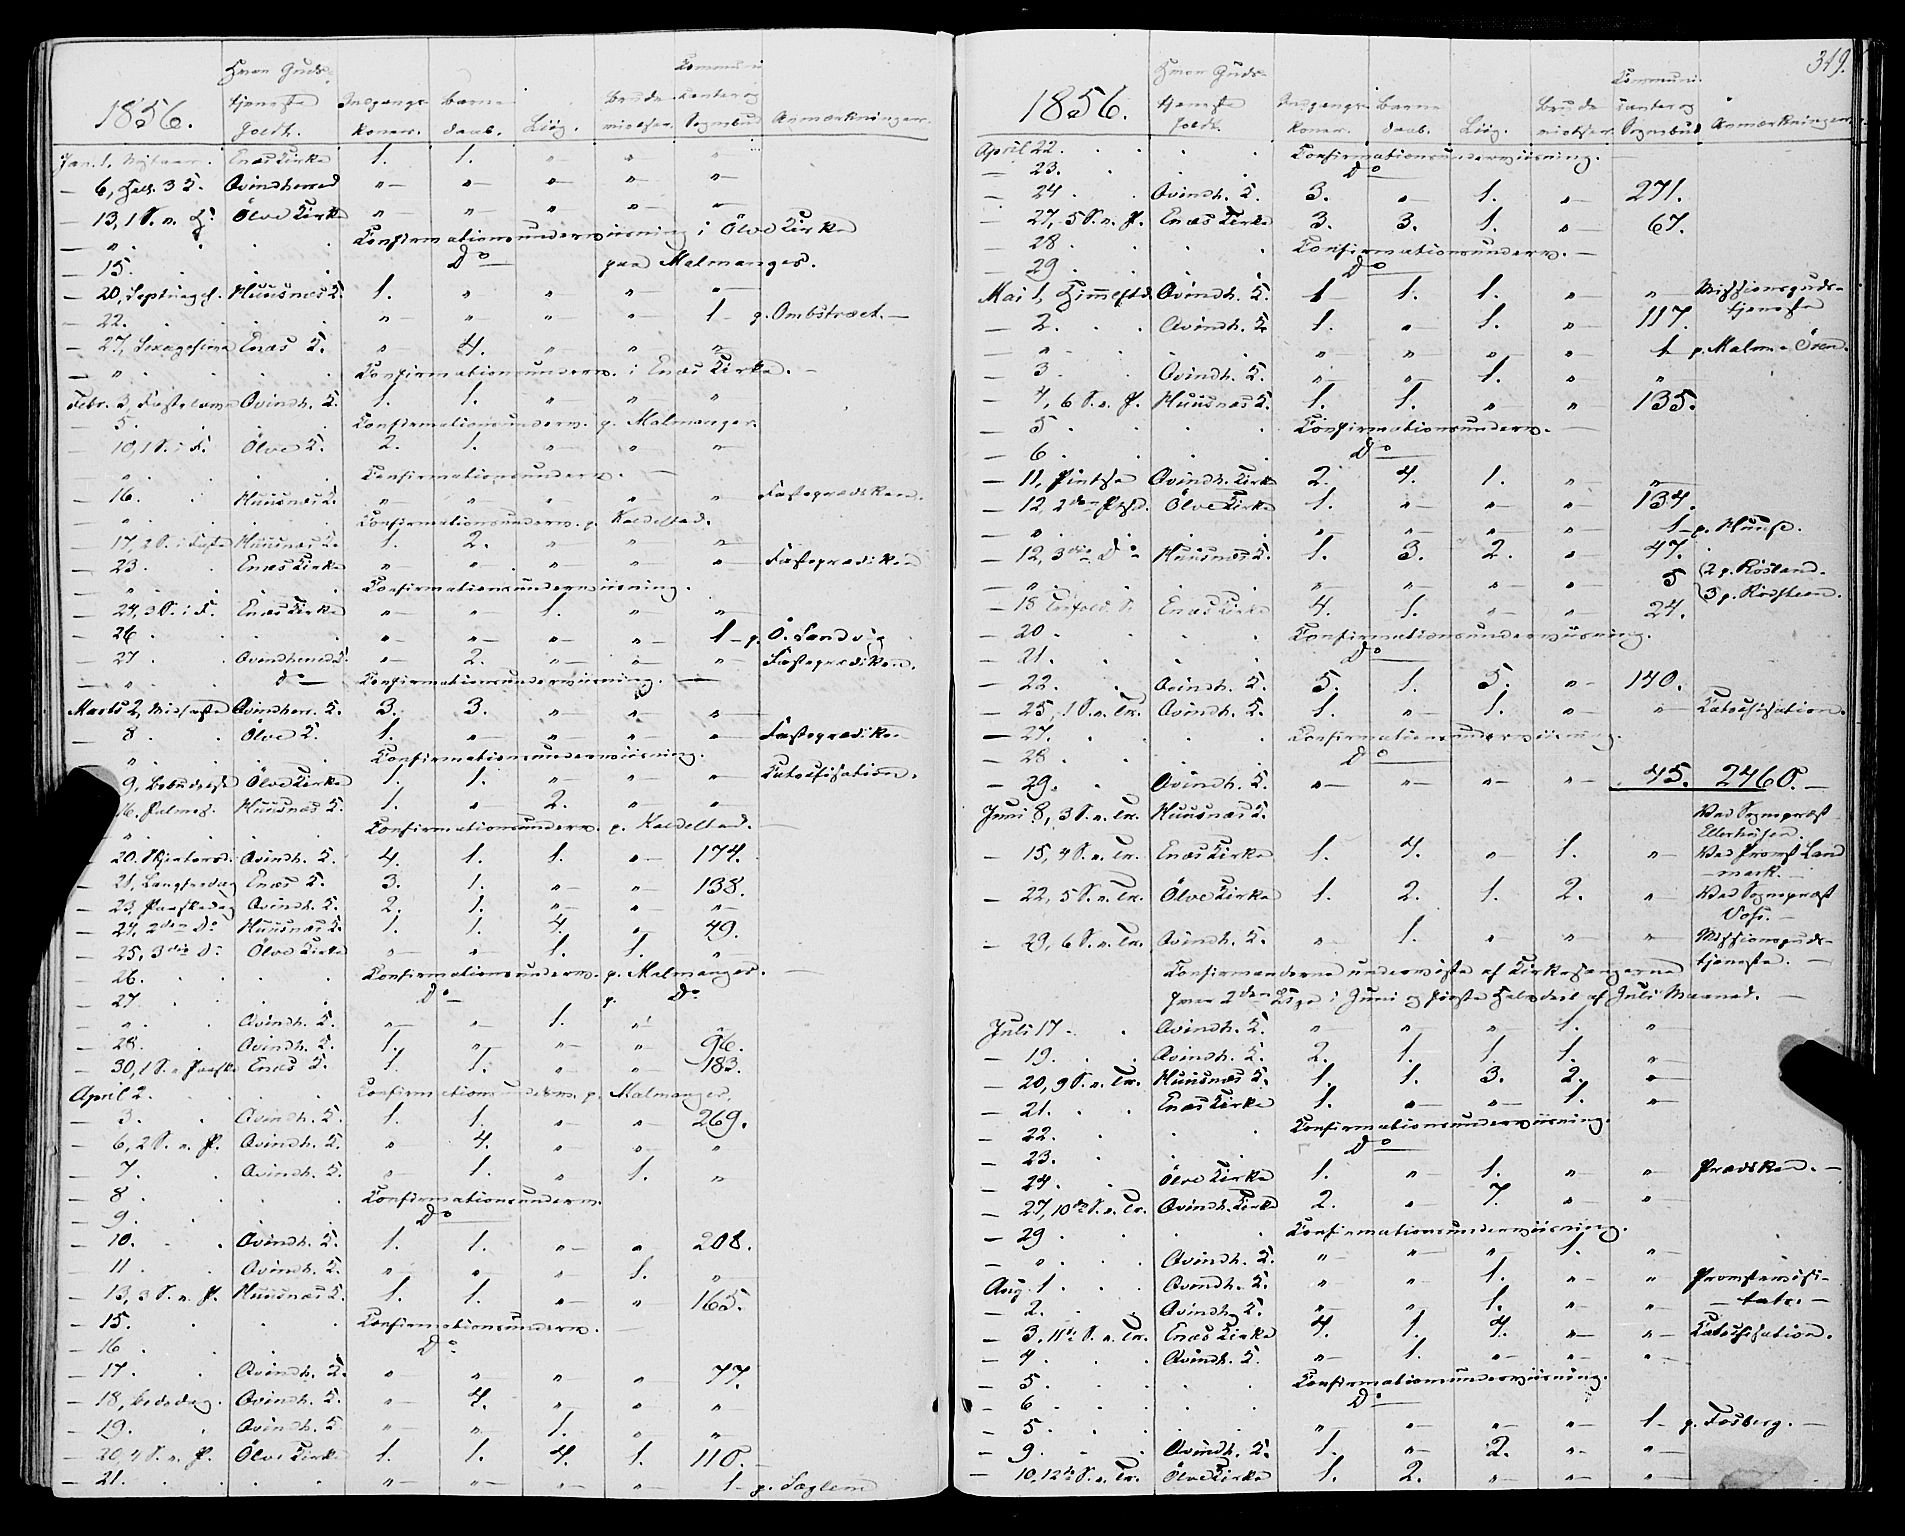 1856. Hvor Guds- tjeneste holdt. Indgangs- koner. Barne- daab. Liig. Brude- vielser. Communi- canter og Sognebud Anmærkninger.
Jan. 1, Nytaar. Enæs Kirke 1. 1. " " "
— 6, Hell. 3 K. Qvindherred " " " " "
— 13, 1 S. e. H. K. Ölve Kirke " " " " "
— " . . Confirmationsunderviisning i Ölve Kirke
— 15. . . Do paa Malmanger.
— 20, Septuages. Huusnæs K. 1. " " " "
— 22. . . " " " " 1 p. Ombstræet.
— 27, Sexagesima Enæs K. " 4. " " "
— " . . Confirmationsunderv. i Enæs Kirke.
Febr. 3, Fastelavn Qvindh. K. 1. 1. " " "
— 5. . . Confirmationsunderv. p. Malmanger.
— 10, 1 S. i F. Ölve K. 2. 1. " " "
— " . . Confirmationsunderv.
— 16. . Huusnæs K. " " " " " Fasteprædiken.
— " . . Confirmationsunderv. p. Kaldestad.
— 17, 2 S. i Faste Huusnæs K. 1. 2. " " "
— 23 . Enæs Kirke " " " " " Fasteprædiken
— " . . Confirmationsunderviisning.
— 24, 3 S. i F. Enæs Kirke " " 1. " "
— 26 . . " " " " 1 p. Ö. Sandvig
— 27 . Qvindherred K. " 2. " " " Fasteprædiken.
— " . Do Confirmationsunderviisning.
Marts 2, Midfaste Qvindherr. K. 3. 3. " " "
— 8 . Ölve K. 1. " " " " Fasteprædiken
— " . . Confirmationsunderviisning.
— 9, Bebudelse Ölve Kirke 1. 1. " " " Catechisation.
— 16. Palmes. Huusnæs K. 1. " 2. " "
— " . . Confirmationsunderv. p. Kaldestad.
— 20. Skjertorsd. Qvindh. K. 4. 1. 1. " 174.
— 21, Langfredag Enæs K. 3. 1. " " 138.
— 23, Paaskedag Qvindh. K. 2. 1. " " "
— 24, 2den Do Huusnæs K. 1. 1. 4. " 49.
— 25, 3die Do Ölve Kirke " " 1. 1. "
— 26. . . Confirmationsunderv. p. Malmanger.
— 27 . . Do p. Do
— " . Qvindh. K. " " 1. " "
— 28. Qvindh. K. 1. " " " 96.
— 30, 1 S. e Paaske Enæs K. 1. 1. " " 183.
April 2. . . Confirmationsunderv. p. Malmanger.
— 3. . Qvindh. K. 1. 1. " " 269.
— 6, 2 S. e. P. Qvindh. K. " 4. " " "
— 7. . Qvindh. K. " 1. " 1. "
— 8 . . Confirmationsunderv.
— 9. . . Do
— 10. . Qvindh. K. 1. 1. " " 208.
— 11. . Qvindh. K. " " " 1. "
— 13, 3 S. e. P. Huusnæs K. 1. 1. " " 165.
— 15. . . Confirmationsunderv.
— 16 . . Do
— 17. . Qvindh. K. " " " " 77.
— 18, Bededag. Qvindh. K. " 4. " " "
— 19. . Qvindh. K " " 1. " "
— 20, 4 S. e. P. Ölve Kirke 1. 1. 4. 1. 110.
— 21. . . " " " " 1 p. Sæglem
319.
1856. Hvor Guds- tjeneste holdt. Indgangs- koner. Barne- daab. Liig. Brude- vielser. Communi- canter og Sognebud Anmærkninger.
April 22. . . Confirmationsunderviisning.
— 23. . . Do
— 24 . Qvindh. K. 3. " 1. " 271.
— 27, 5 S. e. P. Enæs Kirke 3. 3. 1. " 67.
— 28 . . Confirmationsunderv.
— 29 . . Do
Mai 1, Himmelfd. Qvindh. K. 1 1. 1. " " Missionsguds- tjeneste
— 2. . Qvindh. K. 1. " 1. " 117.
— " . . " " " " 1 p. Malm. Ören.
— 3 . Qvindh. K. " " 1. " "
— 4, 6 S. e. P. Huusnæs K. 1. 1. " " 135.
— 5 . . Confirmationsunderv.
— 6 . . Do
— 11, Pintse Qvindh. Kirke 2. 4. 1. " "
— 12 2den Pintsd. Ölve Kirke 1. " " " 134.
— " . . " " " " 1 p. Huuse.
— 12, 3die Do Huusnæs K. 1. 3. 2. " 47.
— " . . " " " " 5 (2 p. Rösland. 3 p. Rödsteen.
— 18 Trefold. S. Enæs Kirke 4. 1. " " 24.
— 20 . . Confirmationsunderviisning.
— 21. . . Do
— 22. . Qvindh. K. 5. 1. 5. " 140.
— 25, 1 S. e. Tr. Qvindh. K. 1. " 1. " " Catechisation.
— 27. . . Confirmationsunderviisning.
— 28 . . Do
— 29. . Qvindh. K. " " " " 45. 2460.
Juni 8, 3 S. e. Tr. Huusnæs K. Ved Sognepræst Ellerhusen.
— 15, 4 S. e. Tr. Enæs Kirke 1. 4. " 1. " Ved Provst Landmark.
— 22, 5 S. e. Tr. Ölve Kirke 1. 2. 1. 2. " Ved Sognepræst Voss.
— 29, 6 S. e. Tr. Qvindh. K. " 1. " " " Missionsguds- tjeneste.
Confirmanderne underviste af Kirkesangerne
hver 2den Uge i Juni og förste Halvdeel af Juli Maaned.
Juli 17. . Qvindh. K. " " " 1. "
— 19. . Qvindh. K. 2. 1. 1. 1. "
— 20, 9 S. e. Tr. Huusnæs K. 1. 1. 3. 2. "
— 21. . Enæs Kirke 1. " " 1. "
— 22. . . Confirmationsunderviisning.
— 23. . . Do
— 24. . Ölve Kirke 1. " 1. " " Prædiken.
— 27, 10de S. e. Tr. Qvindh. Kirke 2. " 7. " "
— 29 . . Confirmationsunderviisning.
— " . Qvindh. K. " " " 1. "
Aug. 1 . Qvindh. K. " " 1. " " Provstevisi- tats.
— 2. . Qvindh. K. " " 1. " "
— 3, 11te S. e. Tr. Enæs Kirke 4. 1. 4. " " Catechisation.
— 4 . Qvindh. K. " 1. " " "
— 5 . . Confirmationsunderviisning.
— 6 . . Do
— 5 . . " " " " 1 p. Fosberg.
— 9. . Qvindh. K. 1. " 2. " "
— 10, 12te S. e. Tr. Ölve Kirke 1. 2. " " "